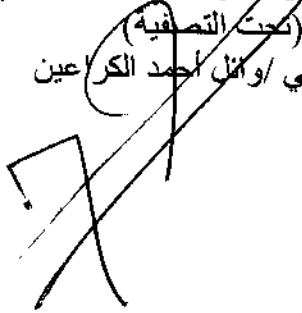 (تحت التصفية)
ي /وائل أحمد الكراعين